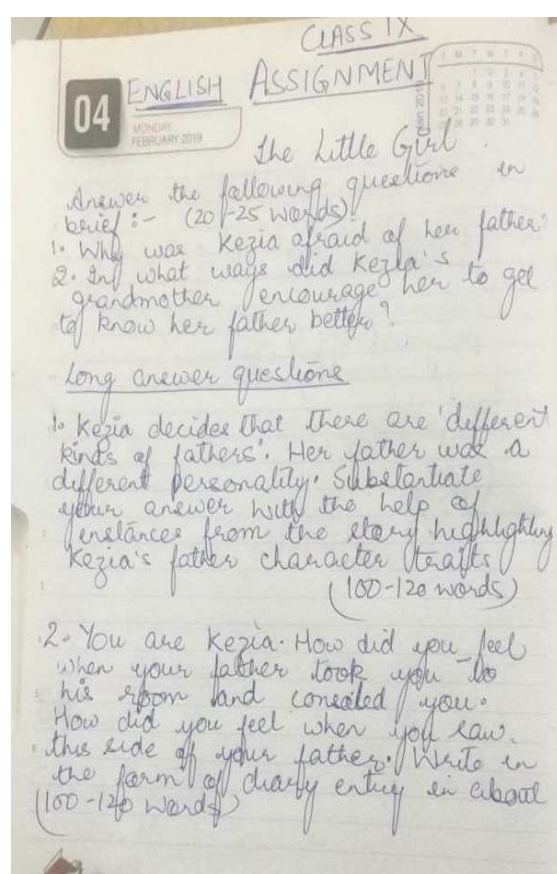 CLASS IX
ENGLISH ASSIGNMENT
04
MONDAY
FEBRUARY 2019
The Little Girl.
Answer the following questions in
brief :- (20-25 words)
1. Why was Kezia afraid of her father?
2. In what ways did Kezia's
grandmother encourage her to get
to know her father better?
Long answer questions
1. Kezia decides that there are 'different
kinds of fathers'. Her father was a
different personality. Substantiate
your answer with the help of
instances from the story highlighting
Kezia's father character traits
(100-120 words)
2. You are Kezia. How did you feel
when your father took you to
his room and consoled you.
How did you feel when you saw
this side of your father. Write in
the form of diary entry in about
(100-120 words)